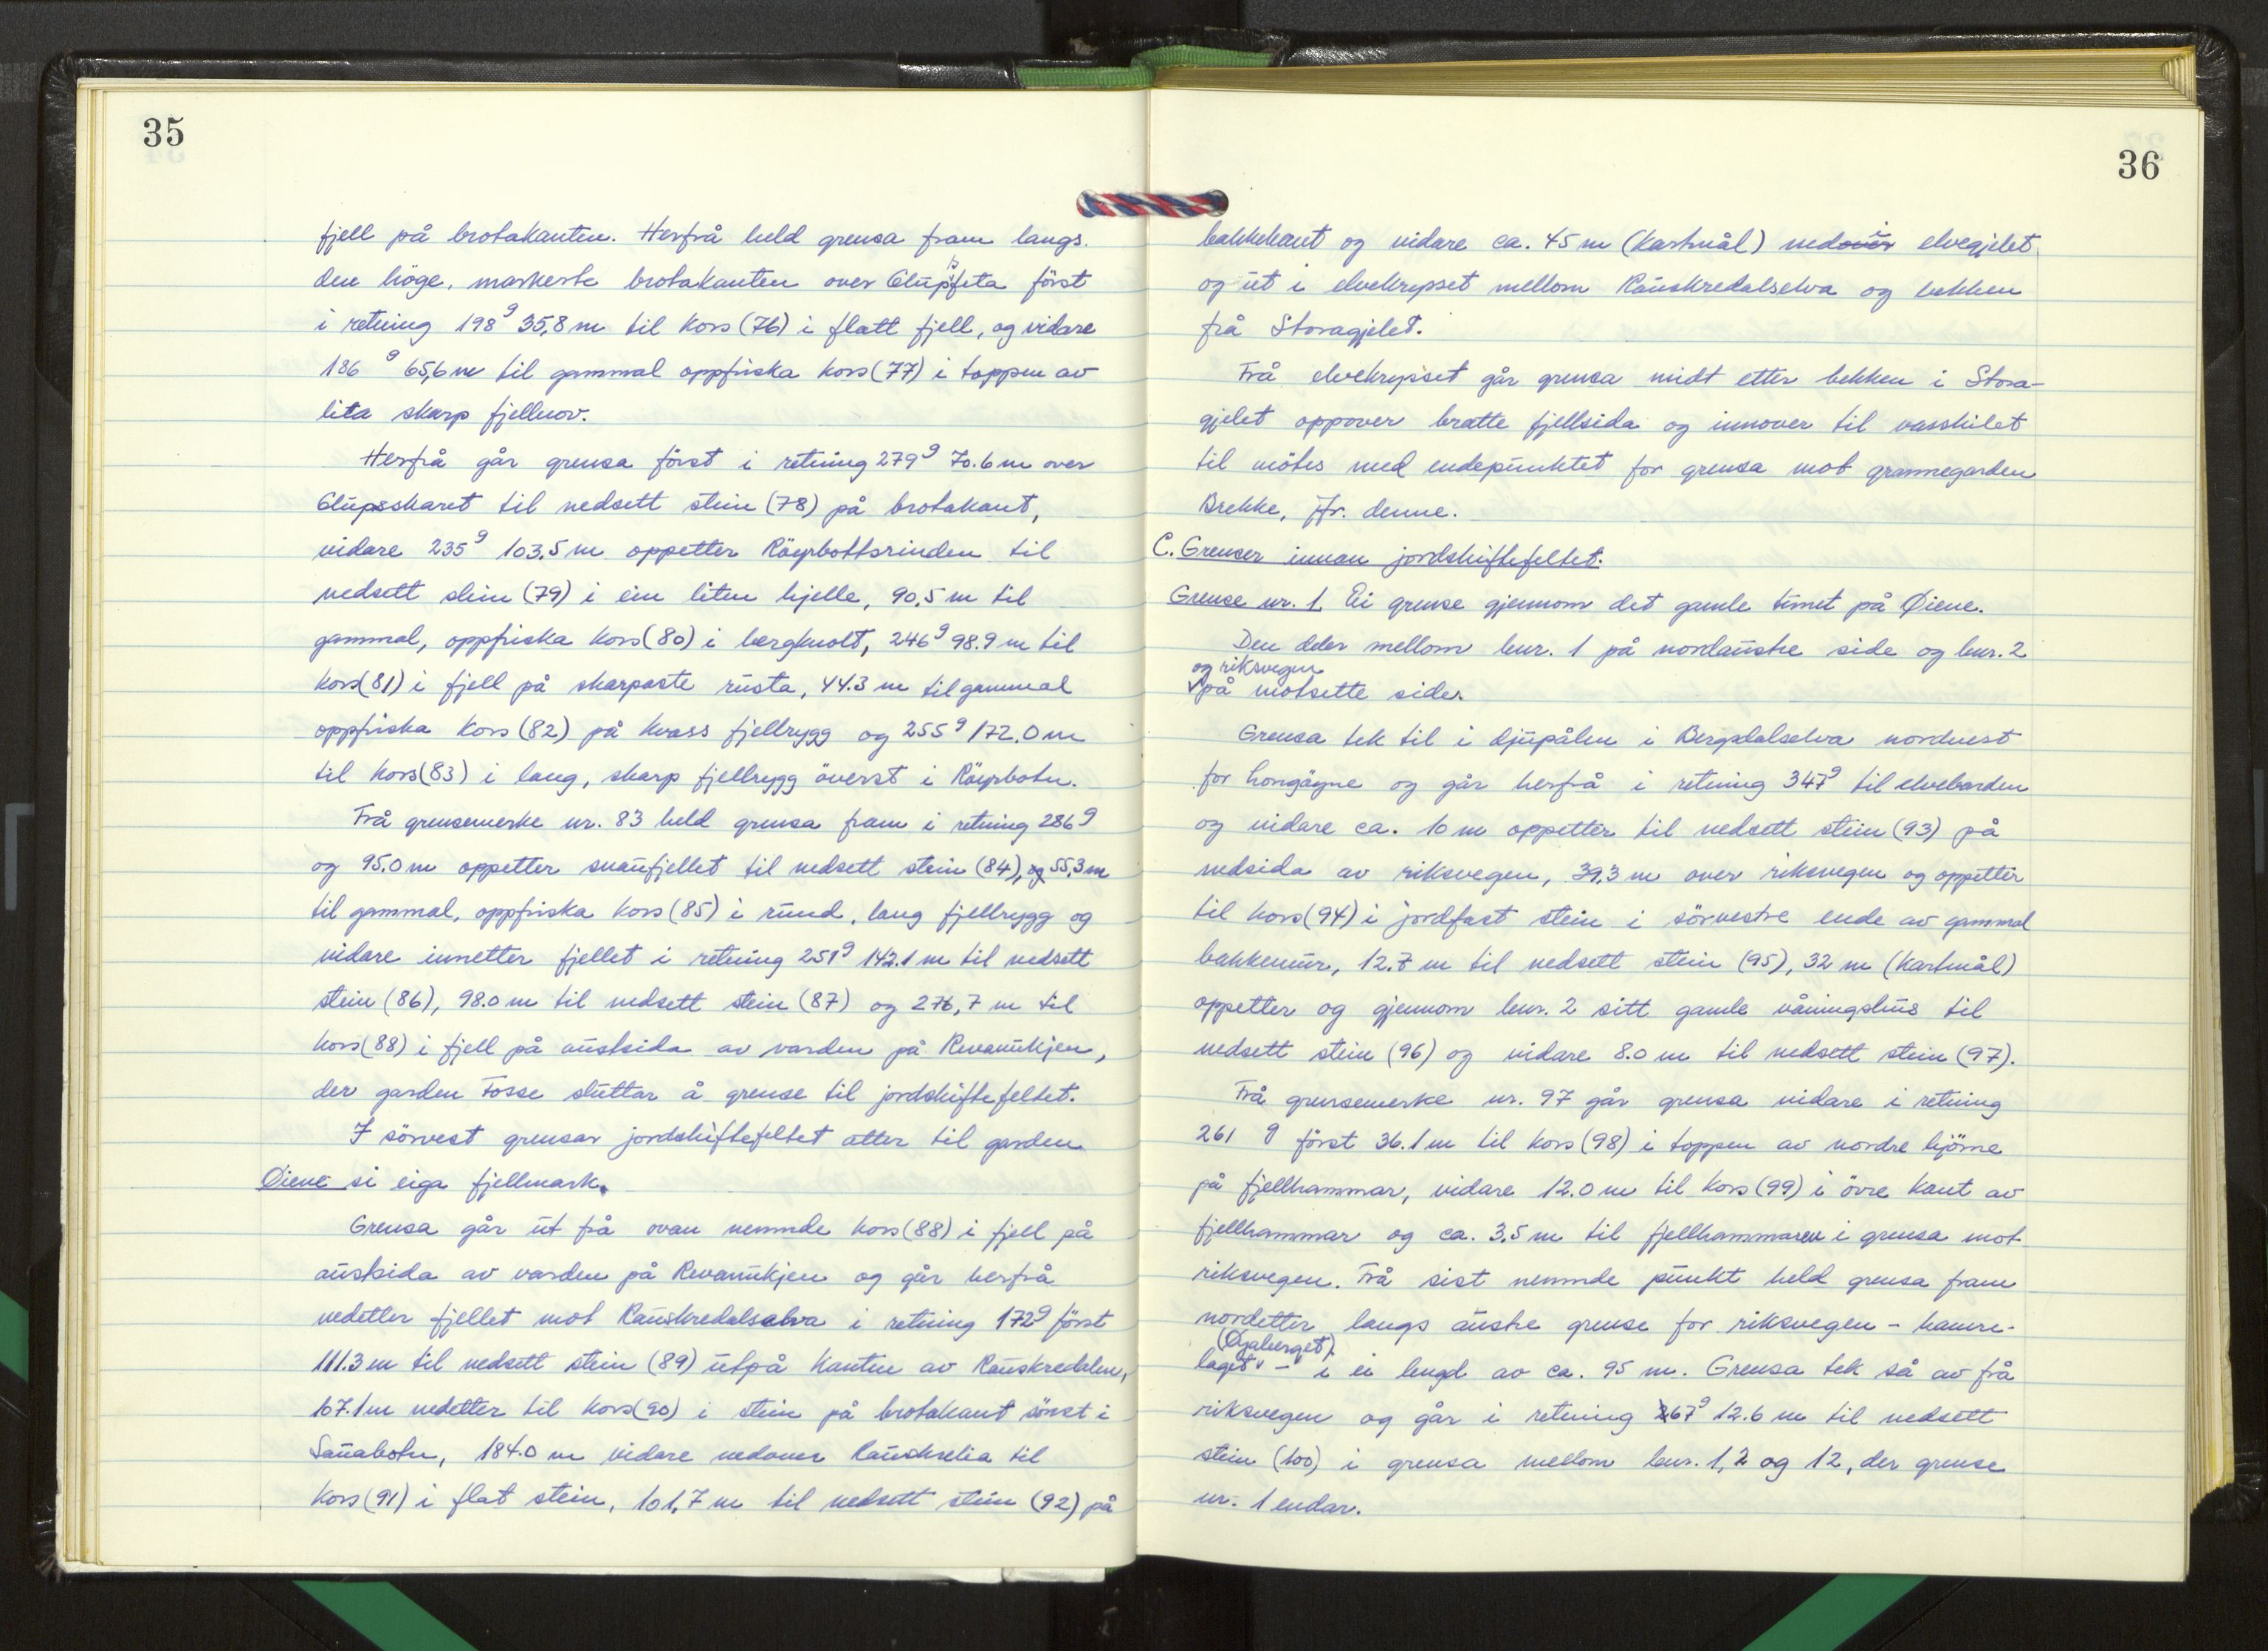 35
fjell på brotakanten. Herfrå held grensa fram langs
den høge, markerte brotakanten over Glupsfeta først
i retning 198 g 35,8 m til kors (76) i flatt fjell, og vidare
186 g 65,6 m til gammal oppfriska kors (77) i toppen av
lita skarp fjellnov.
Herfrå går grensa först i retning 279 g 70.6 m over
Glupsskaret til nedsett stein (78) på brotakant,
vidare 235 g 103.5 m oppetter Röyrbottsrinden til
nedsett stein (79) i ein liten hjelle, 90,5 m til
gammal, oppfriska kors (80) i bergknolt, 246 g 98.9 m til
kors (81) i fjell på skarpaste rusta, 44.3 m til gammal
oppfriska kors (82) på kvass fjellrygg og 255 g 172.0 m
til kors (83) i lang, skarp fjellrygg överst i Röyrbotn.
Frå grensemerke nr. 83 held grensa fram i retning 286 g
og 95.0 m oppetter snaufjellet til nedsett stein (84), og 55,3 m
til gammal, oppfriska kors (85) i rund, lang fjellrygg og
vidare innetter fjellet i retning 251 g 142.1 m til nedsett
stein (86), 98.0 m til nedsett stein (87) og 276,7 m til
kors (88) i fjell på austsida av varden på Revanukjen,
der garden Fosse sluttar å grense til jordskiftefeltet.
I sörvest grensar jordskiftefeltet atter til garden
Øiene si eiga fjellmark.
Grensa går ut frå ovan nemnde kors (88) i fjell på
austsida av varden på Revanukjen og går herfrå
nedetter fjellet mot Rauskredalselva i retning 172 g först
111.3 m til nedsett stein (89) utpå kanten av Rauskredalen,
107.1 m nedetter til kors (90) i stein på brotakant sönst i
Sauabotn, 184.0 m vidare nedover Rauskrelia til
kors (91) i flat stein, 101,7 m til nedsett stein (92) på
36
bakkekant og vidare ca. 45 m (kartmål) nedover i elvegjelet
og ut i elvekrysset mellom Rauskredalselva og bekken
frå Storagjelet.
Frå elvekrysset går grensa midt etter bekken i Stora-
gjelet oppover bratte fjellsida og innover til vasskilet
til mötes med endepunktet for grensa mot grannegarden
Brekke, jfr. denne.
C. Grenser innan jordskiftefeltet.
Grense nr. 1 Ei grense gjennom det gamle tunet på Øiene.
Den deler mellom bnr. 1 på nordaustre side og bnr. 2
og riksvegen
på motsette sider.
Grensa tek til i djupålen i Bergsdalselva nordvest
for Longöyne og går herfrå i retning 347 g til elvebarden
og vidare ca. 10 m oppetter til nedsett stein (93) på
nedsida av riksvegen, 39.3 m over riksvegen og oppetter
til kors (94) i jordfast stein i sörvestre ende av gammal
bakkemur, 12.7 m til nedsett stein (95), 32 m (kartmål)
oppetter og gjennom bnr. 2 sitt gamle våningshus til
nedsett stein (96) og vidare 8.0 m til nedsett stein (97).
Frå grensemerke nr. 97 går grensa vidare i retning
261 g först 36.1 m til kors (98) i toppen av nordre hjörne
på fjellhammar, vidare 12.0 m til kors (99) i övre kant av
fjellhammar og ca. 3.5 m til fjellhammaren i grensa mot
riksvegen. Frå sist nemnde punkt held grensa fram
nordetter langs austre grense for riksvegen - hamre-
(Øyaberget)
laget - i ei lengd av ca. 95 m. Grensa tek så av frå
riksvegen og går i retning 267 g 12.6 m til nedsett
stein (100) i grensa mellom bnr. 1, 2 og 12, der grense
nr. 1 endar.